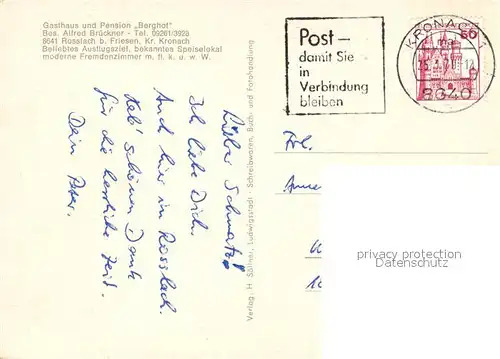 Gasthaus und Pension „Berghof"
Bes. Alfred Brückner - Tel. 09261/3923
8641 Rosslach b. Friesen, Kr. Kronach
Beliebtes Ausflugsziel, bekanntes Speiselokal
moderne Fremdenzimmer m. fl. k. u. w. W.
Post –
damit Sie
in
Verbindung
bleiben
KRONACH 1
8640
60
Lieber Schmatz!
Ich liebe Dich.
Auch hier in Rosslach.
Hab' schönen Dank
für die herrliche Zeit.
Dein Peter.
Verlag: H. Stöner, Ludwigsstadt - Schreibwaren, Buch- und Fotohandlung
Frl.
privacy protection
watermark